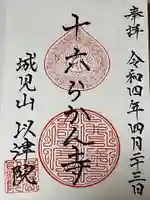 奉拝
令和四年四月二十三日
十六らかん寺
城見山
以津院